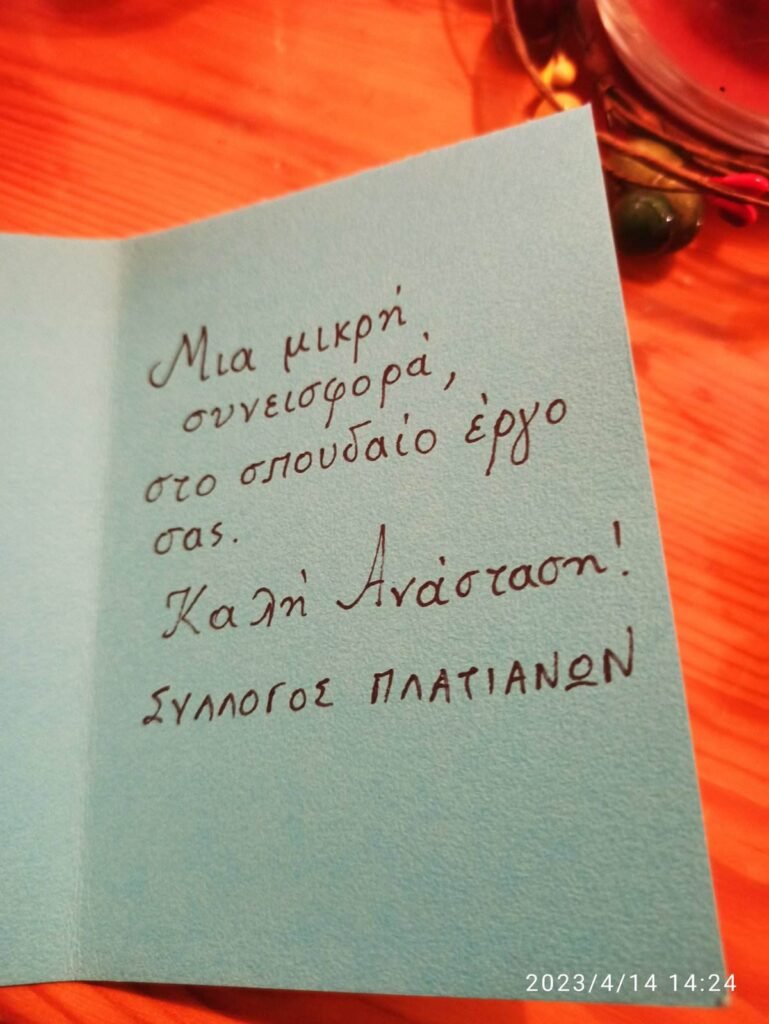 Μια μικρή
συνεισφορά,
στο σπουδαίο έργο
σας.
Καλή Ανάσταση!
ΣΥΛΛΟΓΟΣ ΠΛΑΤΙΑΝΩΝ
2023/4/14 14:24